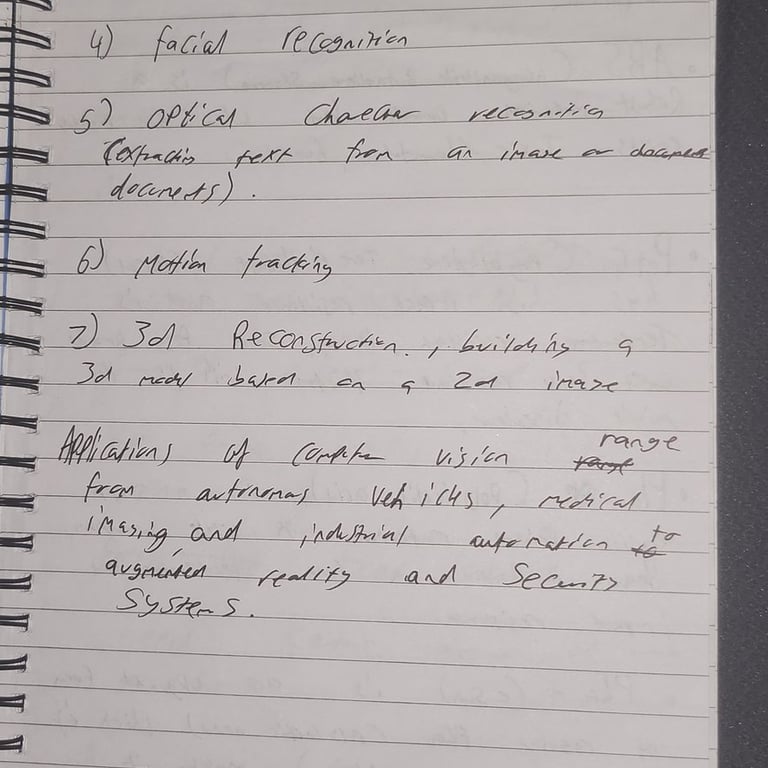 4) facial recognition
5) optical Charecter recognition
(extracting text from an image or document
documents).
6) Motion tracking
7) 3d Reconstruction. , building a
3d model based on a 2d image
Applications of computer vision range
from autonomas vehicles, medical
imaging, and industrial automation to
augmented reality and Security
Systems.